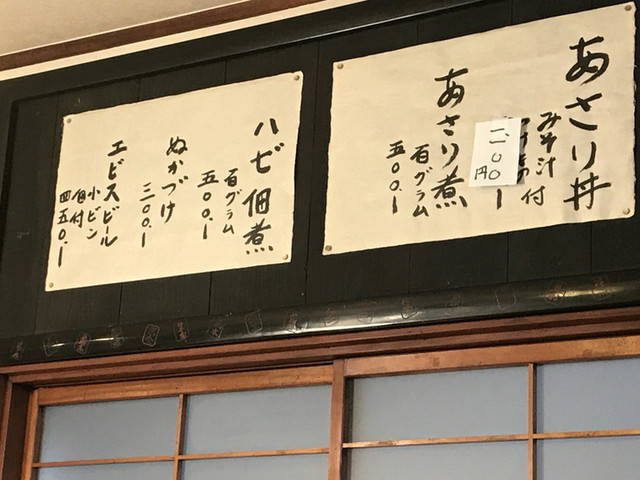 あさり丼
みそ汁付
円
あさり煮
百グラム
五〇〇.ー
ハゼ佃煮
百グラム
五〇〇.ー
ぬかづけ
三〇〇.ー
エビスビール
小ビン
佃付
四五〇.ー